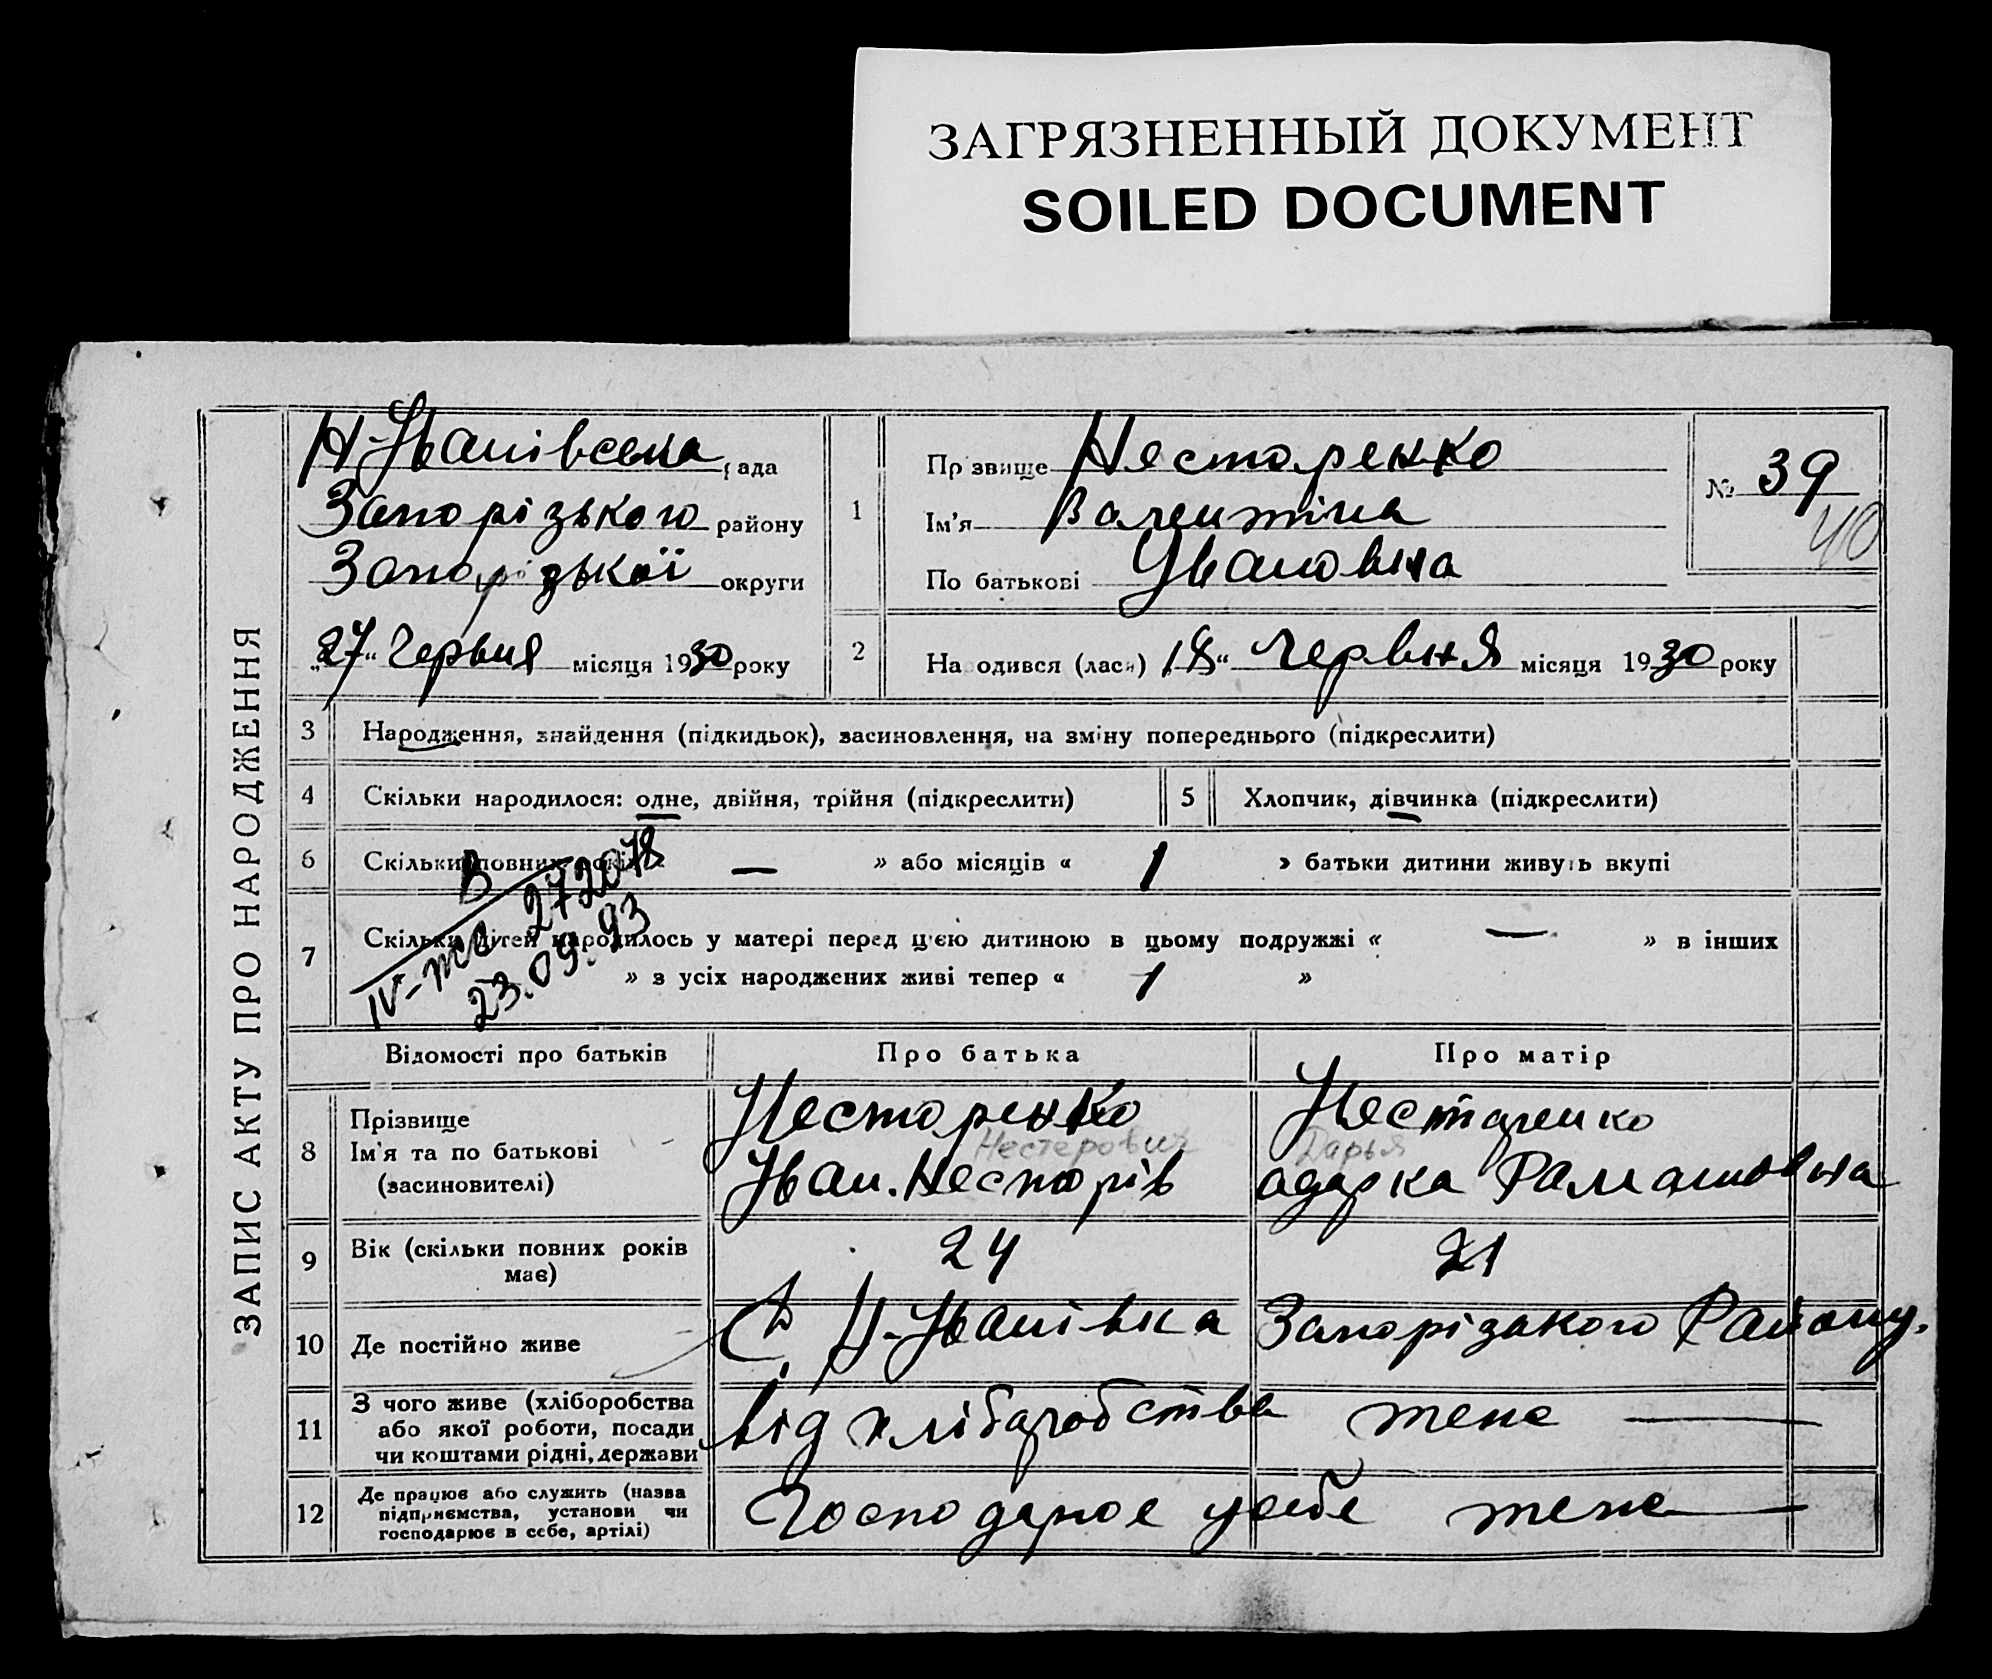 ЗАГРЯЗНЕННЫЙ ДОКУМЕНТ
SOILED DOCUMENT
ЗАПИС АКТУ ПРО НАРОДЖЕННЯ
Н-Іванівська рада
Запорізького району
Запорізької округи
„27“ Червня місяця 1930 року
1
Прізвище Несторенко
Ім'я Валентіна
По батькові Ивановна
№ 39
40
2
Народився (лася) „18“ Червня місяця 1930 року
3 Народження, знайдення (підкидьок), засиновлення, на зміну попереднього (підкреслити)
4 Скільки народилося: одне, двійня, трійня (підкреслити)
5 Хлопчик, дівчинка (підкреслити)
6 Скільки повних років « — » або місяців « 1 » батьки дитини живуть вкупі
7 Скільки дітей народилось у матері перед цією дитиною в цьому подружжі « — » в інших
» з усіх народжених живі тепер « 1 »
IV-жс 272078
23.09.93
Відомості про батьків Про батька Про матір
8 Прізвище
Ім'я та по батькові
(засиновителі)
Несторенко
Нестерович
Іван. Несторів
Нестаренко
Дарья
одарка Рамановна
9 Вік (скільки повних років
має)
24 21
10 Де постійно живе С. Н-Іванівка Запорізького Району.
11 З чого живе (хліборобства
або якої роботи, посади
чи коштами рідні, держави
від хліборобства жена —
12 Де працює або служить (назва
підприємства, установи чи
господарює в себе, артілі)
Господарює у себе жена —